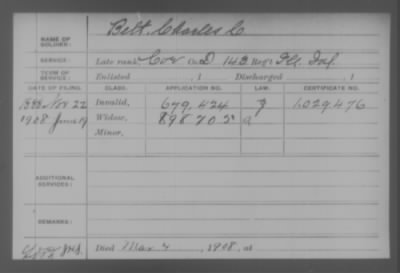 NAME OF SOLDIER: Bitt, Charles C.
SERVICE: Late rank, Cor Co. D, 142 Reg't Ill. Inf.
TERM OF SERVICE: Enlisted , 1 Discharged , 1
DATE OF FILING. CLASS. APPLICATION NO. LAW. CERTIFICATE NO.
1888 Nov 22 Invalid, 679,424 1,029,476
1908 June 19 Widow, 898 702
Minor,
ADDITIONAL SERVICES:
REMARKS:
Died Mar 4, 1908, at